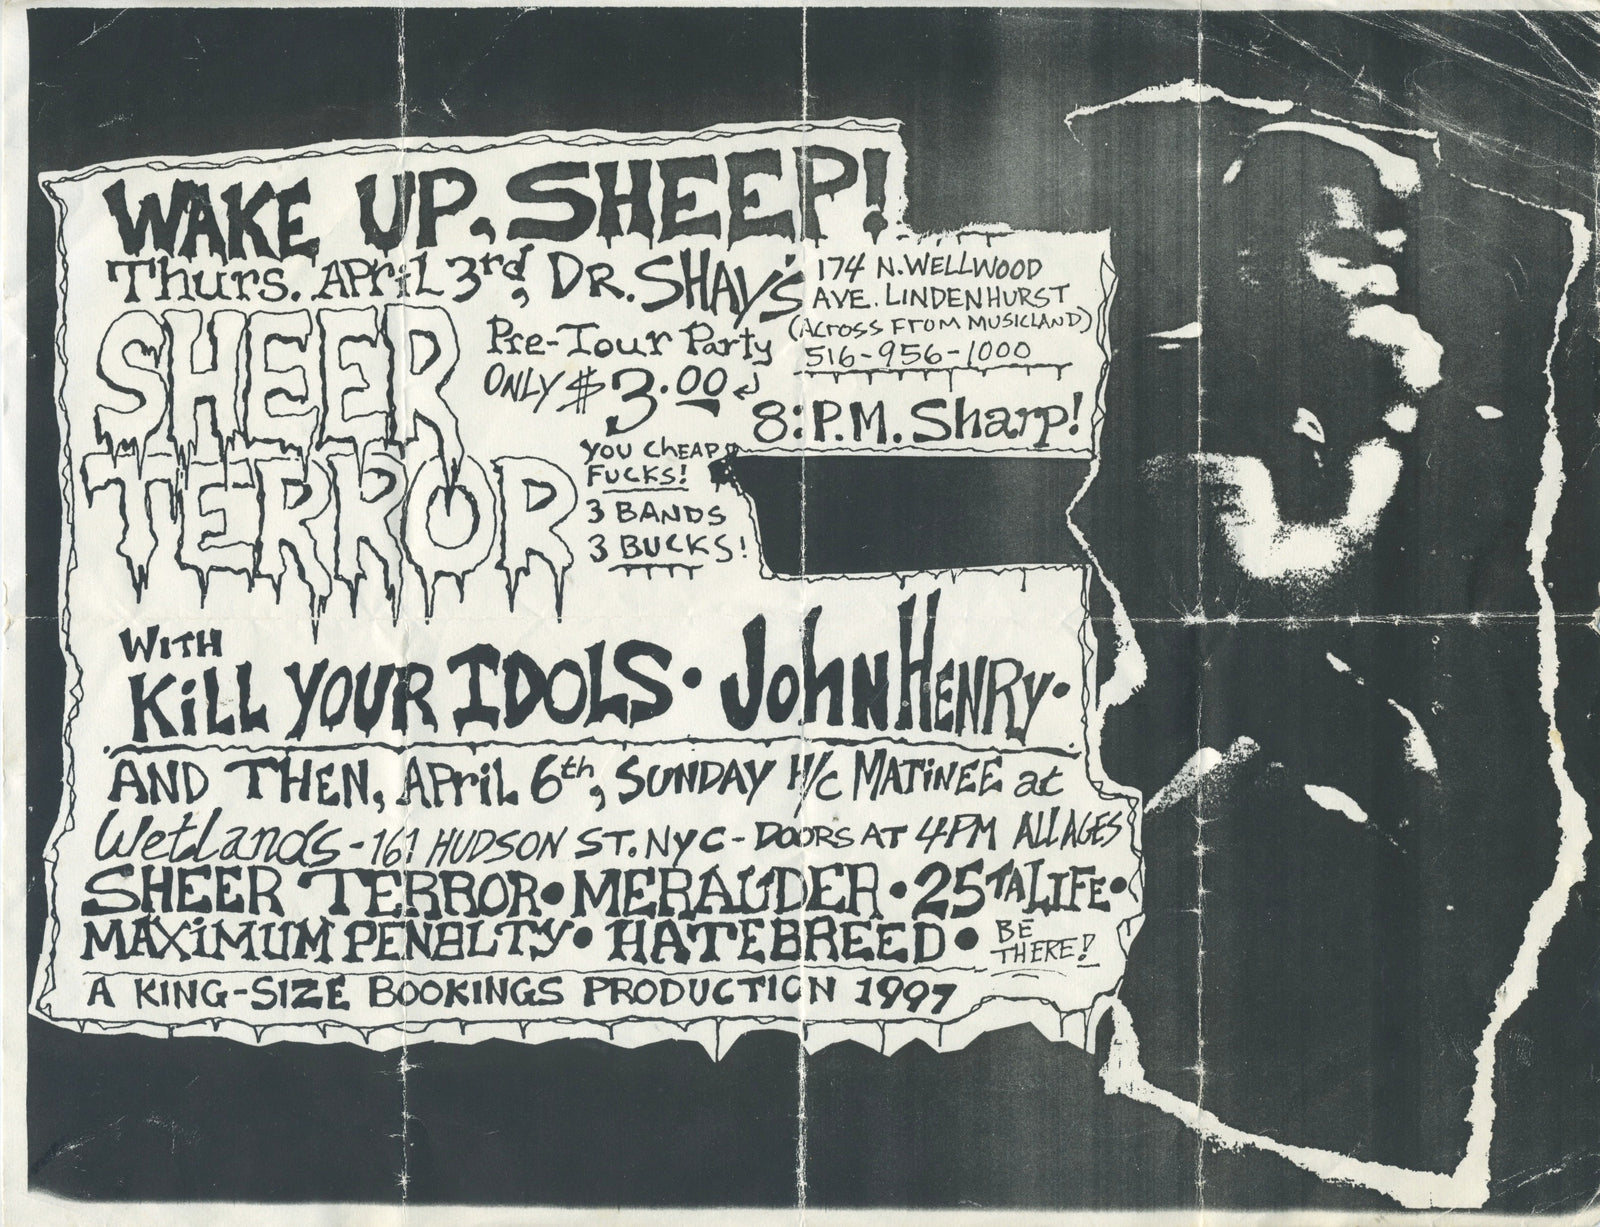 WAKE UP, SHEEP!
Thurs. April 3rd, DR. SHAY'S
174 N. WELLWOOD
AVE. LINDENHURST
(ACROSS FROM MUSICLAND)
516-956-1000
SHEER
TERROR
Pre-Tour Party
ONLY $3.00
8:P.M. Sharp!
YOU CHEAP
FUCKS!
3 BANDS
3 BUCKS!
WITH
KiLL YOUR IDOLS • JohN HENRY •
AND THEN, APRiL 6th, SUNDAY H/C MATiNEE at
Wetlands - 161 HUDSON ST. NYC - DOORS AT 4PM ALL AGES
SHEER TERROR • MERAUDER • 25 TA LIFE •
MAXiMUM PENALTY • HATEBREED •
BE
THERE!
A KING-SIZE BOOKINGS PRODUCTION 1997